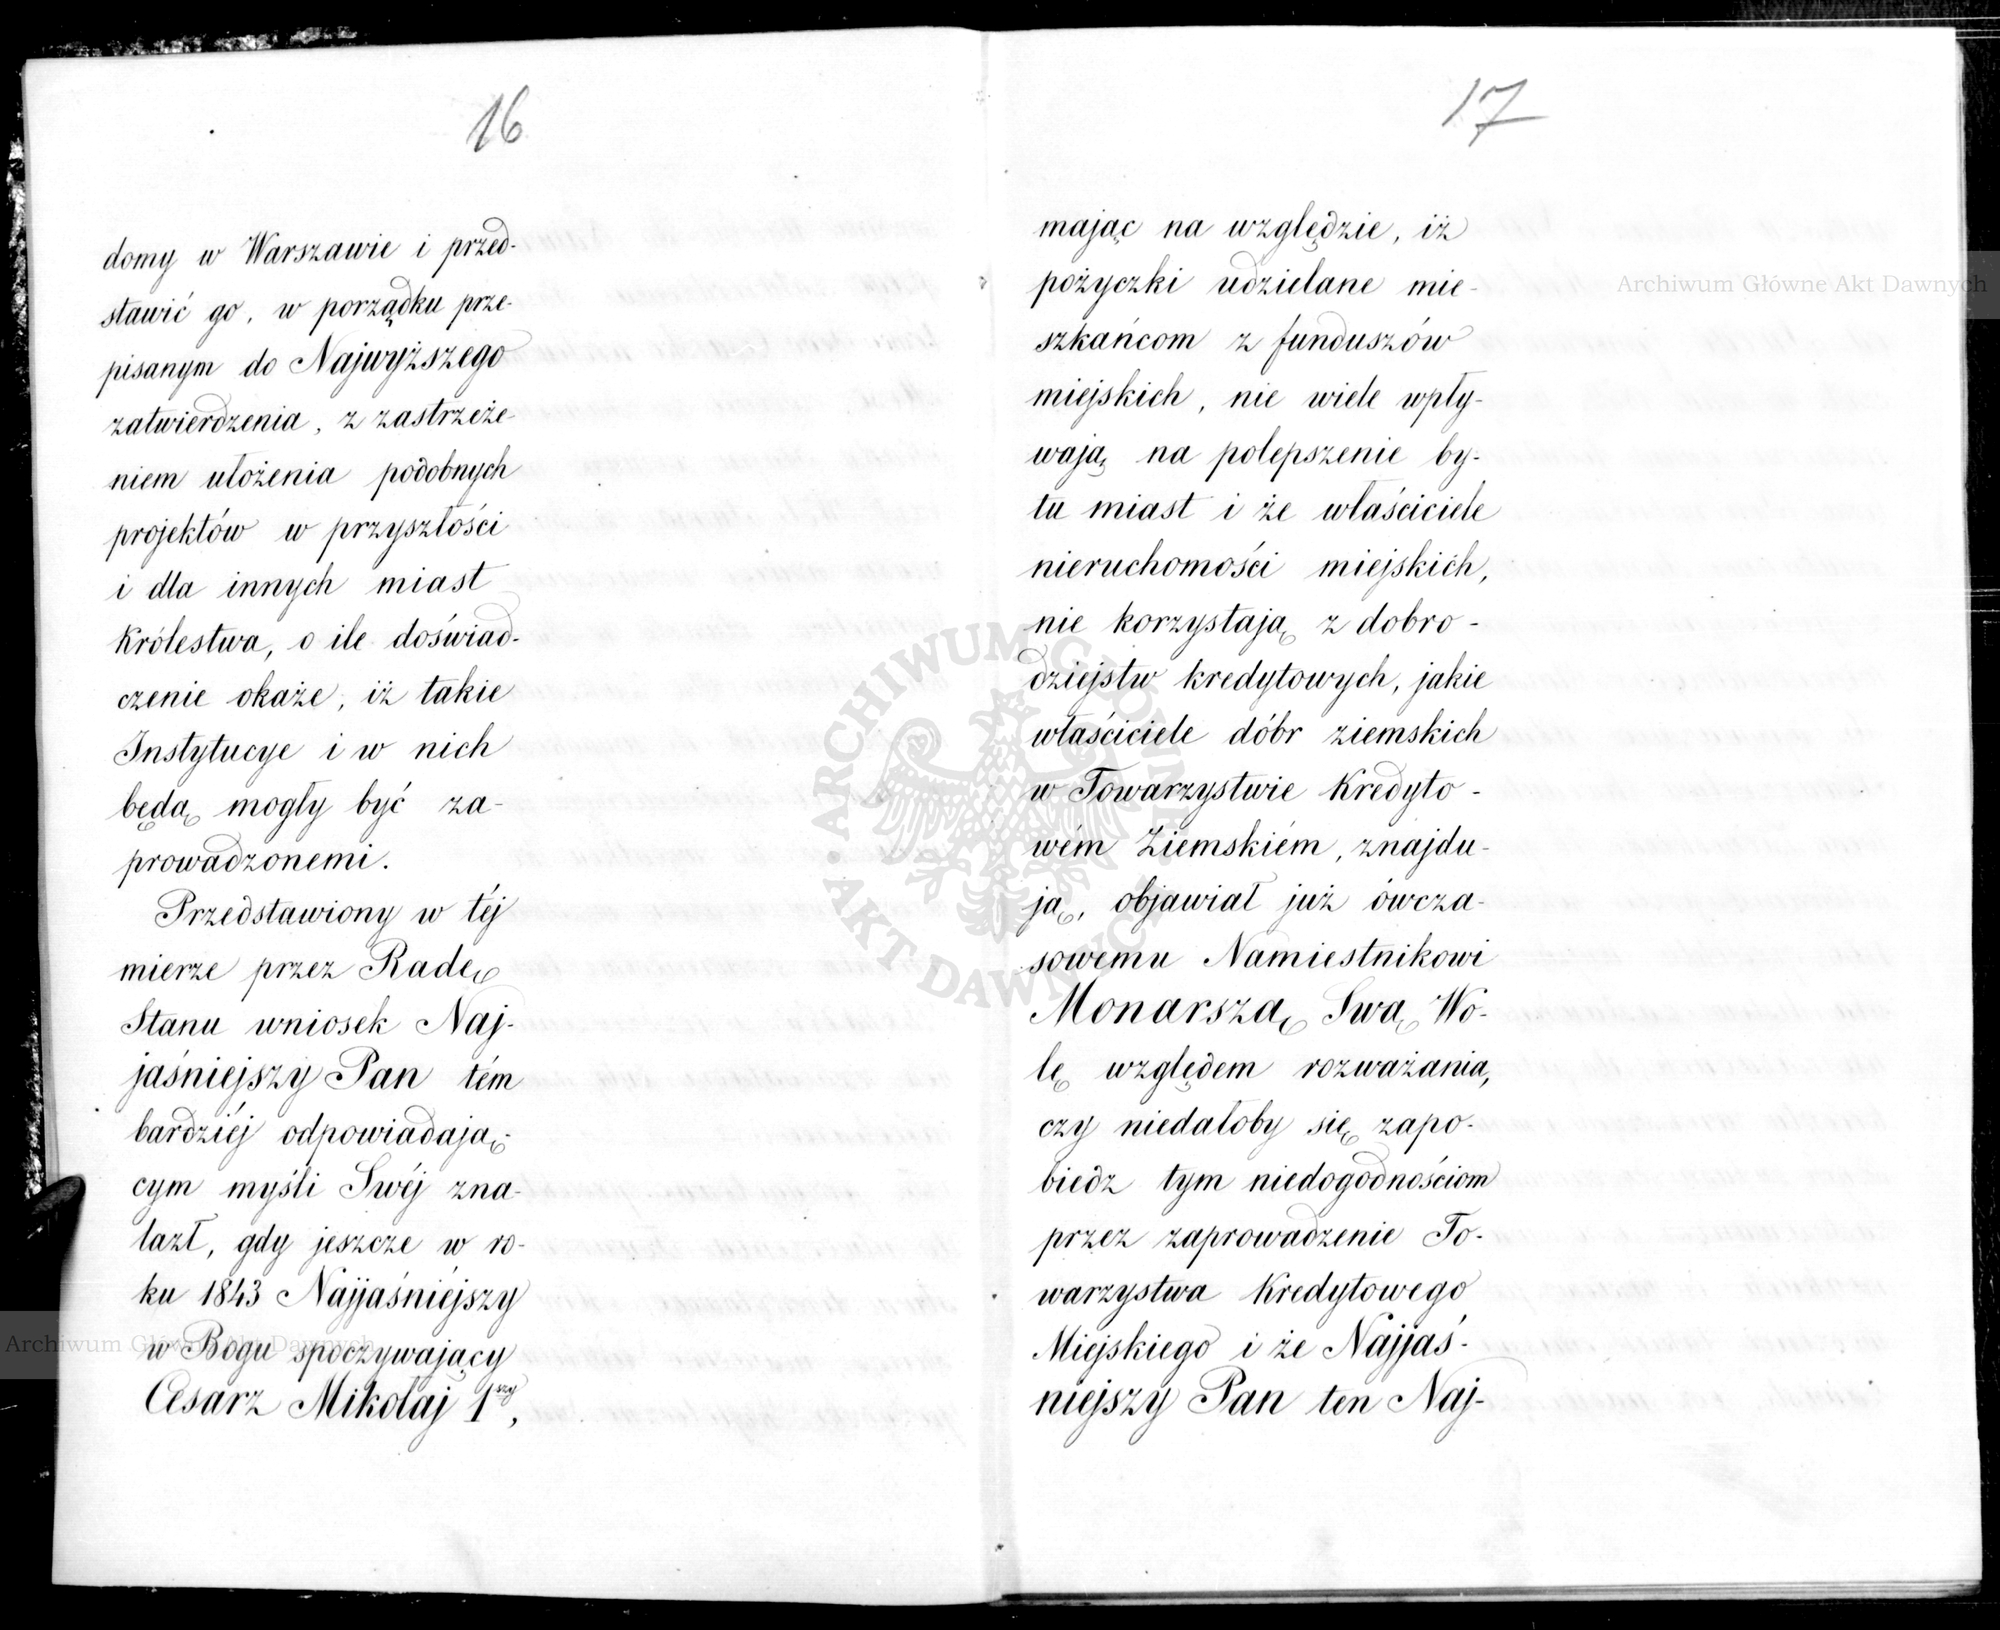 16
domy w Warszawie i przed-
stawić go, w porządku prze-
pisanym do Najwyższego
zatwierdzenia, z zastrzeże-
niem ułożenia podobnych
projektów w przyszłości
i dla innych miast
Królestwa, o ile doświad-
czenie okaże, iż takie
Instytucye i w nich
będą mogły być za-
prowadzonemi.
Przedstawiony w téj
mierze przez Radę
Stanu wniosek Naj-
jaśniejszy Pan tém
bardziéj odpowiadają-
cym myśli Swéj zna-
lazł, gdy jeszcze w ro-
ku 1843 Najjaśniéjszy
w Bogu spoczywający
Cesarz Mikołaj 1szy,
17
mając na względzie, iż
pożyczki udzielane mie-
szkańcom z funduszów
miejskich, nie wiele wpły-
wają na polepszenie by-
tu miast i że właściciele
nieruchomości miejskich,
nie korzystają z dobro-
dziejstw kredytowych, jakie
właściciele dóbr ziemskich
w Towarzystwie Kredyto-
wém Ziemskiém, znajdu-
ją, objawiał już ówcza-
sowemu Namiestnikowi
Monarszą Swą Wo-
lę względem rozważania,
czy niedałoby się zapo-
biedz tym niedogodnościom
przez zaprowadzenie To-
warzystwa Kredytowego
Miejskiego i że Najjaś-
niejszy Pan ten Naj-
Archiwum Główne Akt Dawnych
Archiwum Główne Akt Dawnych
ARCHIWUM GŁÓWNE
AKT DAWNYCH